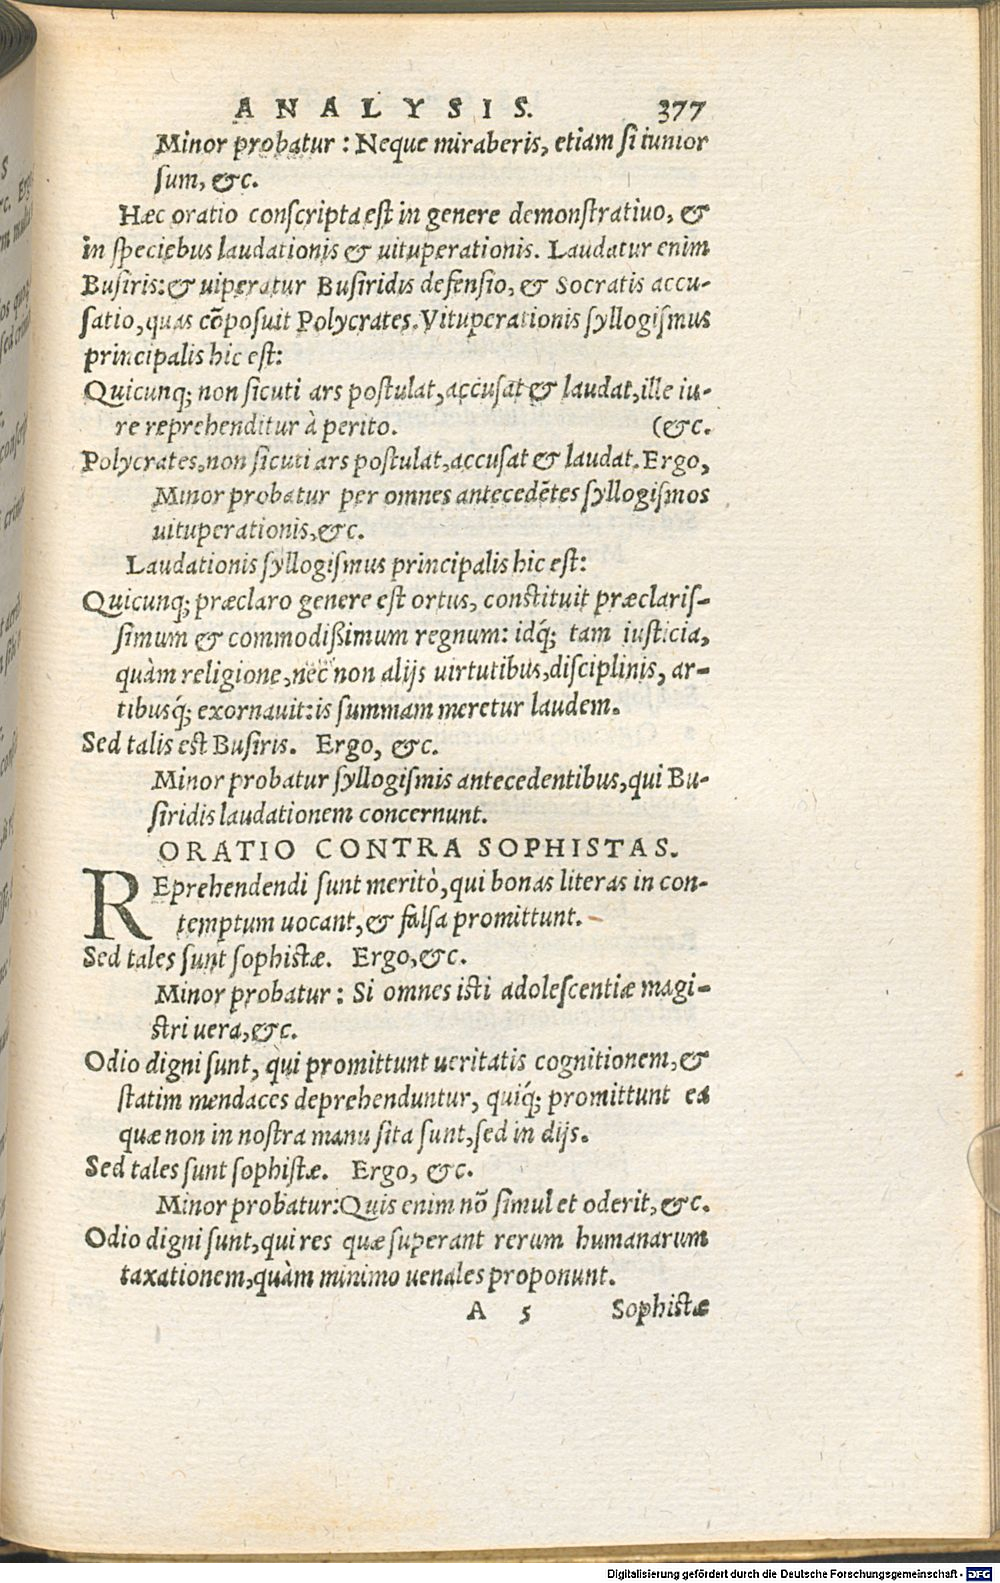 ANALYSIS. 377
Minor probatur: Neque miraberis, etiam si iunior
sum, &c.
Hæc oratio conscripta est in genere demonstratiuo, &
in speciebus laudationis & uituperationis. Laudatur enim
Busiris: & uiperatur Busiridis defensio, & Socratis accu-
satio, quas cõposuit Polycrates. Vituperationis syllogismus
principalis hic est:
Quicunq; non sicuti ars postulat, accusat & laudat, ille iu-
re reprehenditur à perito. (&c.
Polycrates, non sicuti ars postulat, accusat & laudat. Ergo,
Minor probatur per omnes antecedẽtes syllogismos
uituperationis, &c.
Laudationis syllogismus principalis hic est:
Quicunq; præclaro genere est ortus, constituit præclaris-
simum & commodißimum regnum: idq́; tam iusticia,
quàm religione, nec non alijs uirtutibus, disciplinis, ar-
tibusq́; exornauit: is summam meretur laudem.
Sed talis est Busiris. Ergo, &c.
Minor probatur syllogismis antecedentibus, qui Bu-
siridis laudationem concernunt.
ORATIO CONTRA SOPHISTAS.
REprehendendi sunt meritò, qui bonas literas in con-
temptum uocant, & falsa promittunt.
Sed tales sunt sophistæ. Ergo, &c.
Minor probatur: Si omnes isti adolescentiæ magi-
stri uera, &c.
Odio digni sunt, qui promittunt ueritatis cognitionem, &
statim mendaces deprehenduntur, quiq́; promittunt ea
quæ non in nostra manu sita sunt, sed in dijs.
Sed tales sunt sophistæ. Ergo, &c.
Minor probatur: Quis enim nõ simul et oderit, &c.
Odio digni sunt, qui res quæ superant rerum humanarum
taxationem, quàm minimo uenales proponunt.
A 5 Sophistæ
Digitalisierung gefördert durch die Deutsche Forschungsgemeinschaft - DFG